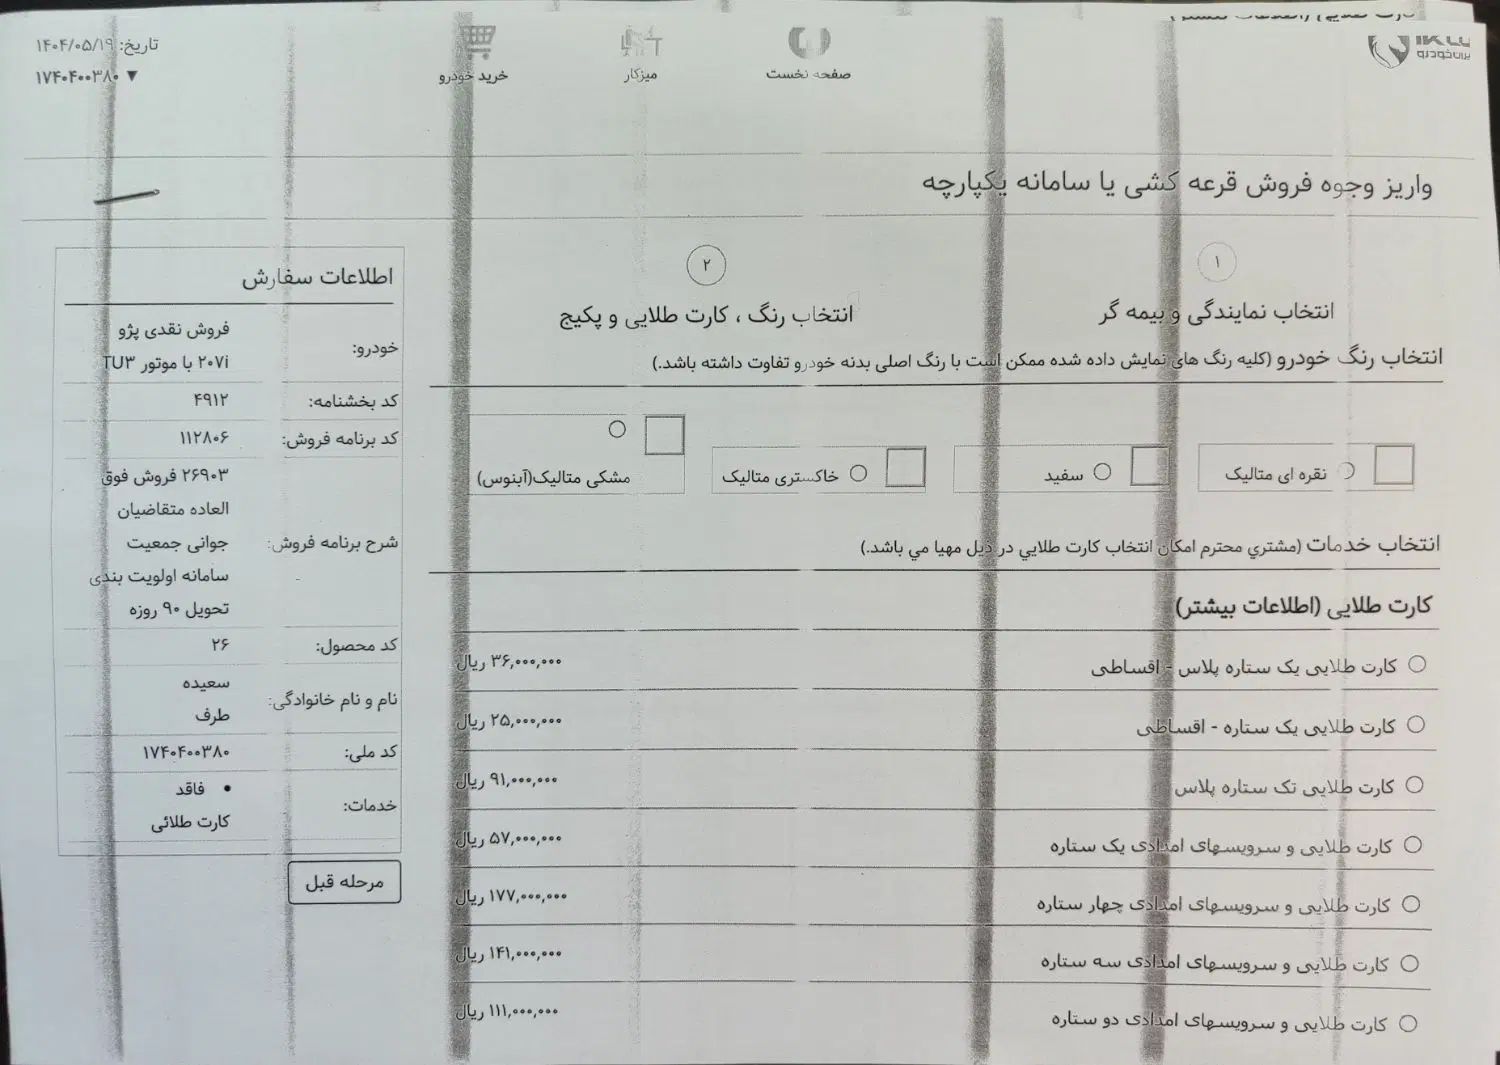 ایران خودرو
صفحه نخست
میزکار
خرید خودرو
تاریخ: ۱۴۰۴/۰۵/۱۹
▼ ۱۷۴۰۴۰۰۳۸۰
واریز وجوه فروش قرعه کشی یا سامانه یکپارچه
۱
انتخاب نمایندگی و بیمه گر
۲
انتخاب رنگ ، کارت طلایی و پکیج
انتخاب رنگ خودرو (کلیه رنگ های نمایش داده شده ممکن است با رنگ اصلی بدنه خودرو تفاوت داشته باشد.)
نقره ای متالیک
سفید
خاکستری متالیک
مشکی متالیک(آبنوس)
انتخاب خدمات (مشتري محترم امکان انتخاب کارت طلايي در ذيل مهيا مي باشد.)
کارت طلایی (اطلاعات بیشتر)
کارت طلایی یک ستاره پلاس - اقساطی ۳۶,۰۰۰,۰۰۰ ریال
کارت طلایی یک ستاره - اقساطی ۲۵,۰۰۰,۰۰۰ ریال
کارت طلایی تک ستاره پلاس ۹۱,۰۰۰,۰۰۰ ریال
کارت طلایی و سرویسهای امدادی یک ستاره ۵۷,۰۰۰,۰۰۰ ریال
کارت طلایی و سرویسهای امدادی چهار ستاره ۱۷۷,۰۰۰,۰۰۰ ریال
کارت طلایی و سرویسهای امدادی سه ستاره ۱۴۱,۰۰۰,۰۰۰ ریال
کارت طلایی و سرویسهای امدادی دو ستاره ۱۱۱,۰۰۰,۰۰۰ ریال
اطلاعات سفارش
خودرو: فروش نقدی پژو
۲۰۷i با موتور TU۳
کد بخشنامه: ۴۹۱۲
کد برنامه فروش: ۱۱۲۸۰۶
شرح برنامه فروش: ۲۶۹۰۳ فروش فوق
العاده متقاضیان
جوانی جمعیت
سامانه اولویت بندی
تحویل ۹۰ روزه
کد محصول: ۲۶
نام و نام خانوادگی: سعیده
طرف
کد ملی: ۱۷۴۰۴۰۰۳۸۰
خدمات: • فاقد
کارت طلائی
مرحله قبل